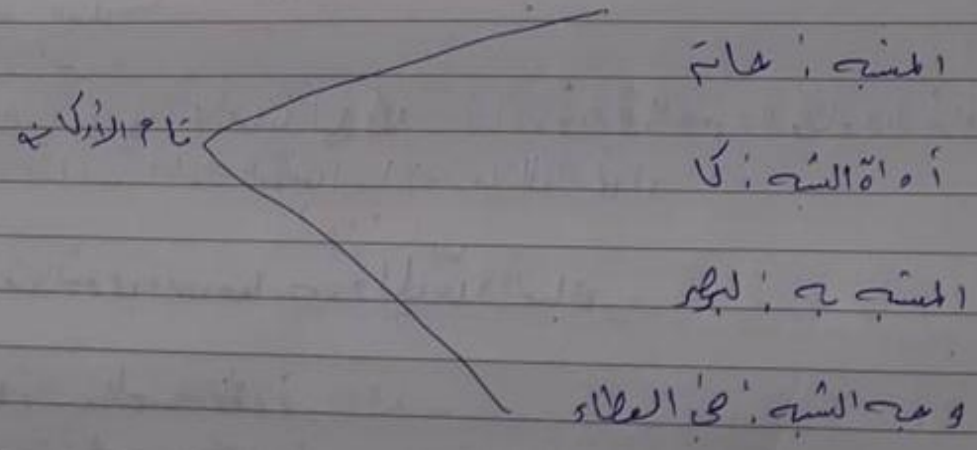 المشبه : حاتم
أداة الشبه : كا
المشبه به : لبحر
وجه الشبه : في العطاء
تام الأركان